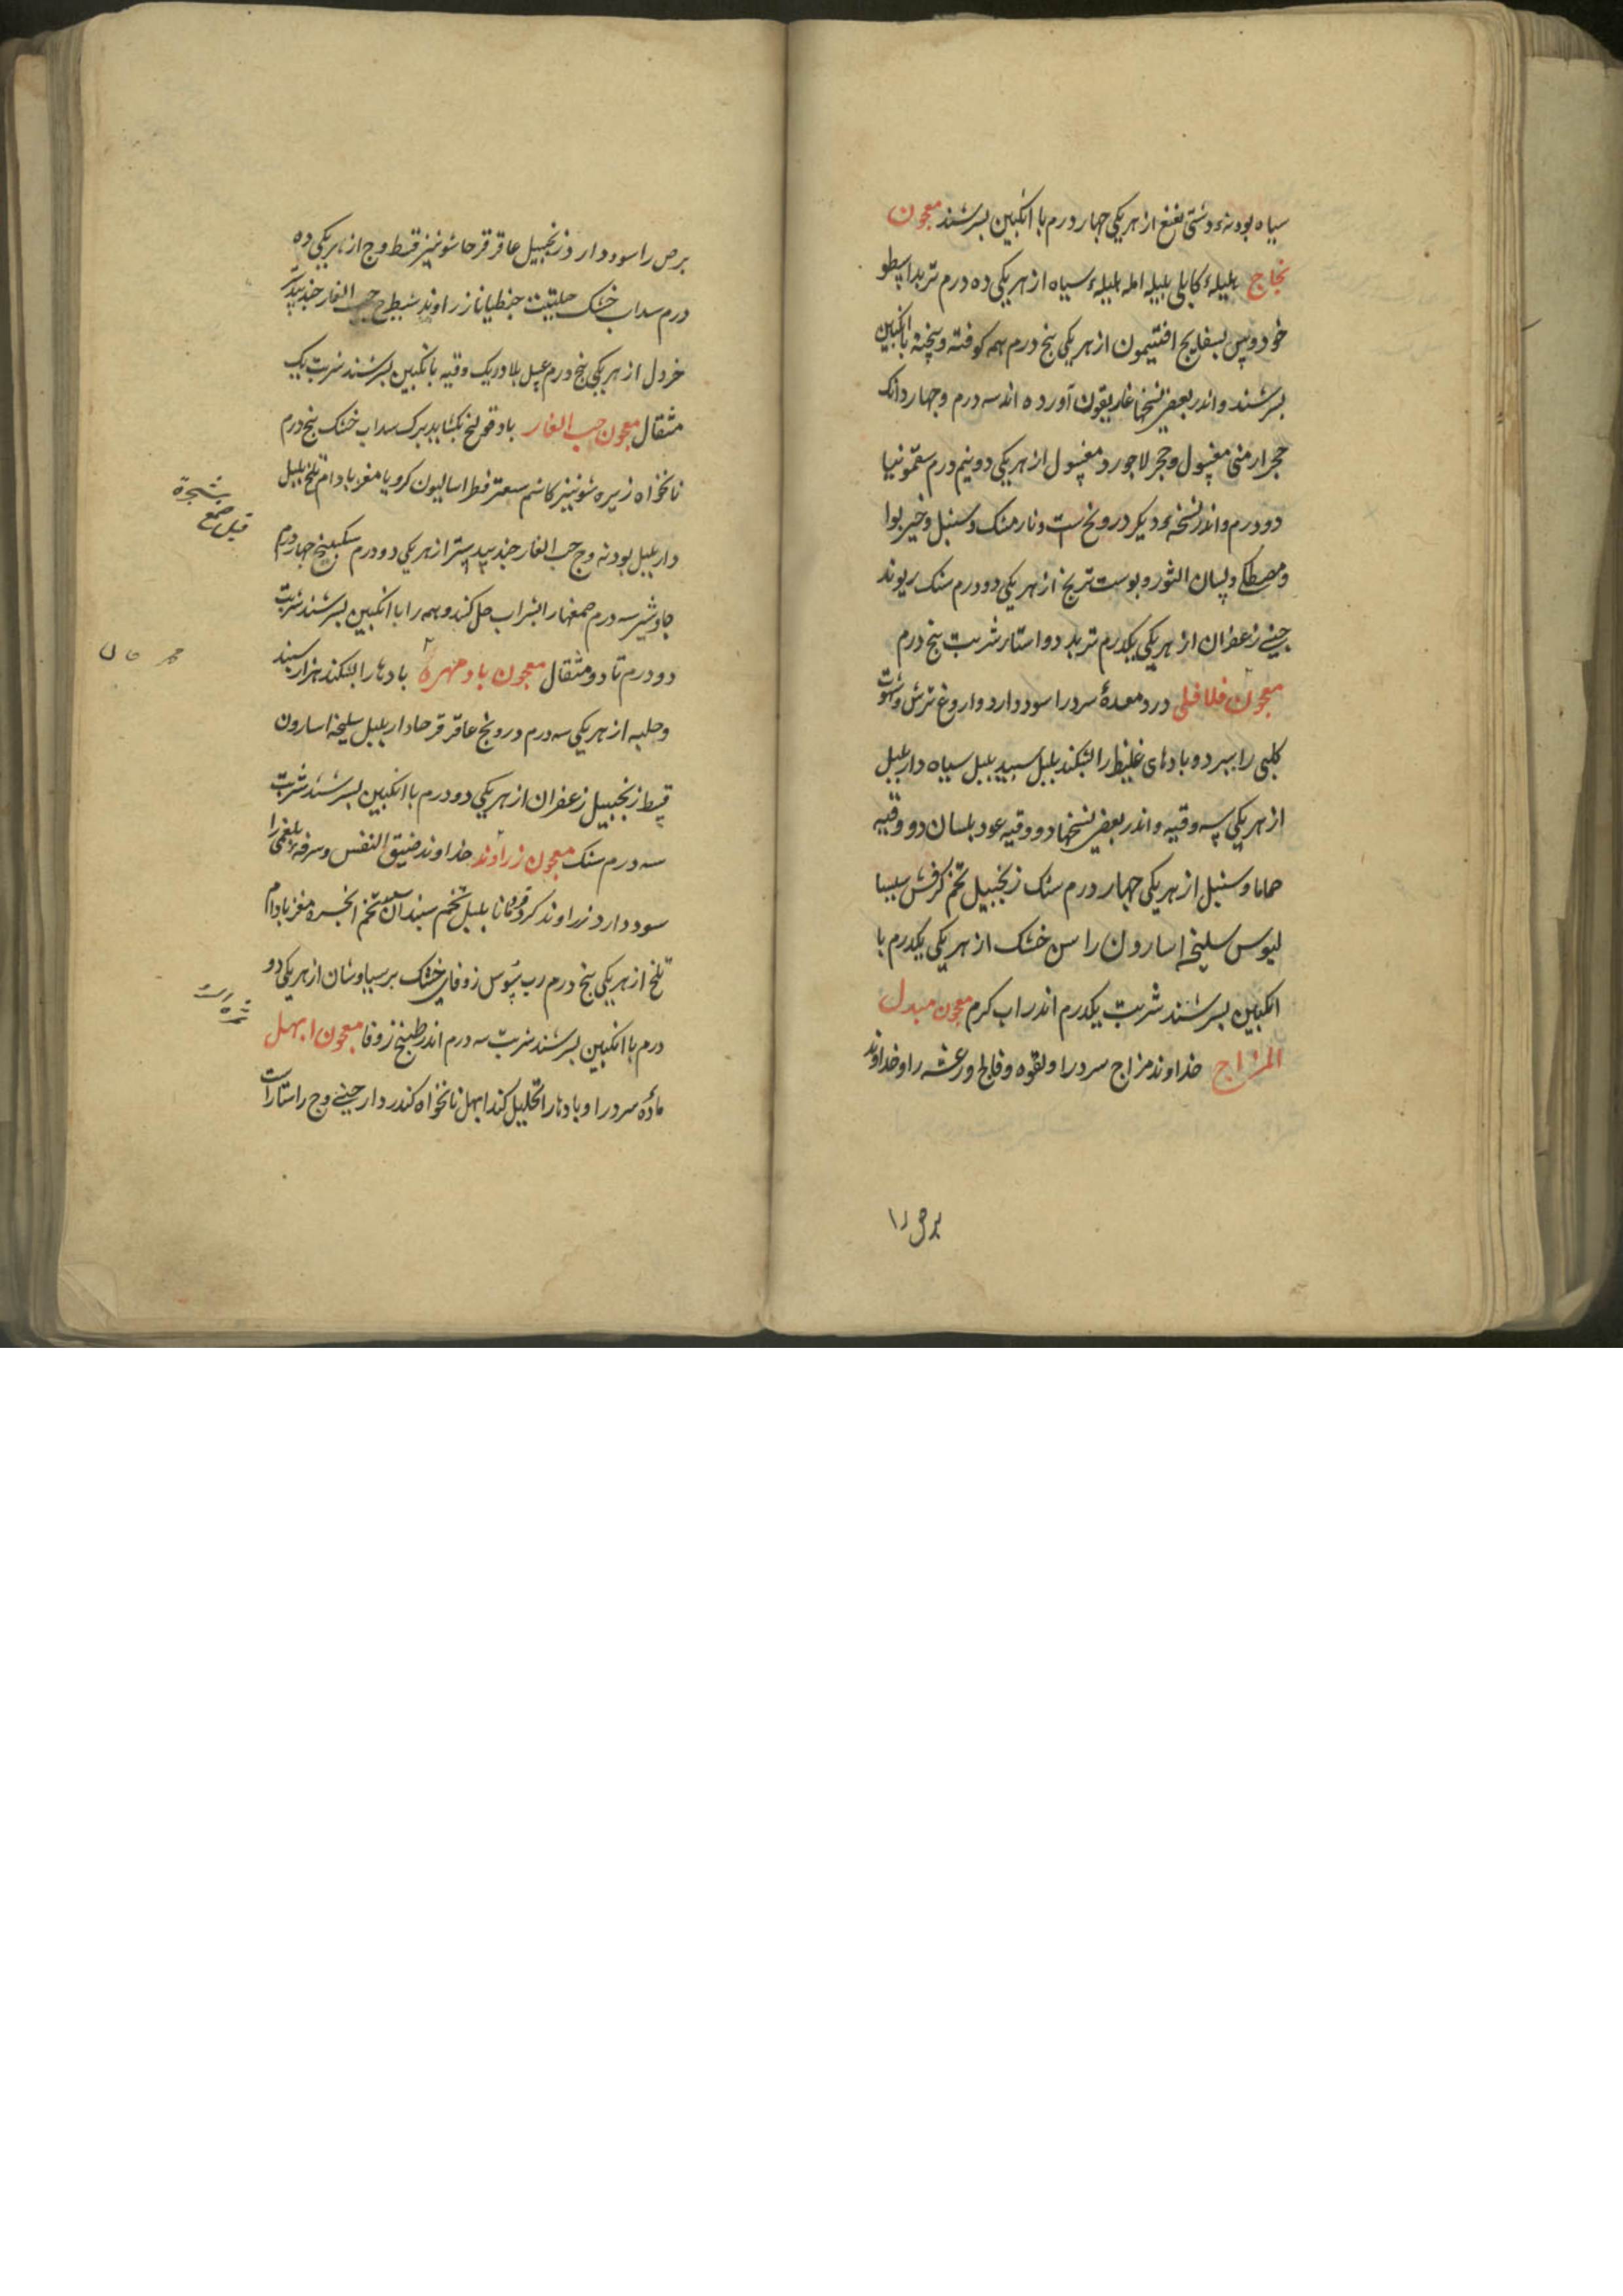 سیاه بودنهٔ دشتی نعنع از هر یکی جهار درم با انکبین بسرشند معجون
نجاج هلیلهٔ کابلی بلیله امله هلیلهٔ سیاه از هر یکی ده درم تربد اسطو
خودوس بسفایج افتیمون از هر یکی بنج درم همه کوفته و بیخته بانکبین
بسرشند و اندر بعضی نسخها غاریقون آورده اند سه درم و جهار دانک
حجر ارمنی مغسول و حجر لاجورد مغسول از هر یکی دو نیم درم سقمونیا
دو درم و اندر نسخهٔ دیکر درونج است و نارمشک و سنبل و خیربوا
و مصطکی و لسان الثور و بوست ترنج از هر یکی دو درم سنک ریوند
جینی زعفران از هر یکی یکدرم تربد دو استار شربت بنج درم
معجون فلافلی درد معدهٔ سرد را سود دارد و اروغ ترش و شهوت
کلبی را ببرد و بادهای غلیظ را بشکند بلبل سبید بلبل سیاه داربلبل
از هر یکی سه وقیه و اندر بعضی نسخها دو وقیه عود بلسان دو وقیه
حماما و سنبل از هر یکی جهار درم سنک زنجبیل تخم کرفس سیسا
لیوس سلیخه اسارون راسن خشک از هر یکی یکدرم با
انکبین بسرشند شربت یکدرم اندر اب کرم معجون مبدل
المزاج خداوند مزاج سرد را و لقوه و فالج و رعشه را و خداوند
برص را
برص را سود دارد زنجبیل عاقرقرحا شونیز قسط وج از هر یکی ده
درم سداب خشک حلتیت جنطیانا زراوند شیطرج حب الغار جندبیدستر
خردل از هر یکی بنج درم عسل بلادر یک وقیه بانکبین بسرشند شربت یک
مثقال معجون حب الغار باد قولنج بکشاید برک سداب خشک بنج درم
نانخواه زیره شونیز کاشم سعتر فطراسالیون کرویا مغز بادام تلخ بلبل
داربلبل بودنه وج حب الغار جندبیدستر از هر یکی دو درم سکبینج جهار درم
جاوشیر سه درم صمغها را بشراب حل کنند و همه را با انکبین بسرشند شربت
دو درم تا دو مثقال معجون باد مهره بادها را بشکند هزاراسبند
و حلبه از هر یکی سه درم درونج عاقرقرحا داربلبل سلیخه اسارون
قسط زنجبیل زعفران از هر یکی دو درم با انکبین بسرشند شربت
سه درم سنک معجون زراوند خداوند ضیق النفس و سرفهٔ بلغمی را
سود دارد زراوند کرد قردمانا بلبل تخم سبندان تخم انجره مغز بادام
تلخ از هر یکی بنج درم رب سوس زوفای خشک برسیاوشان از هر یکی دو
درم با انکبین بسرشند شربت سه درم اندر طبیخ زوفا معجون ابهل
مادهٔ سرد را و بادها را تحلیل کند ابهل نانخواه کندر دارجینی وج راستاراست
قیل صمغ
شجرة